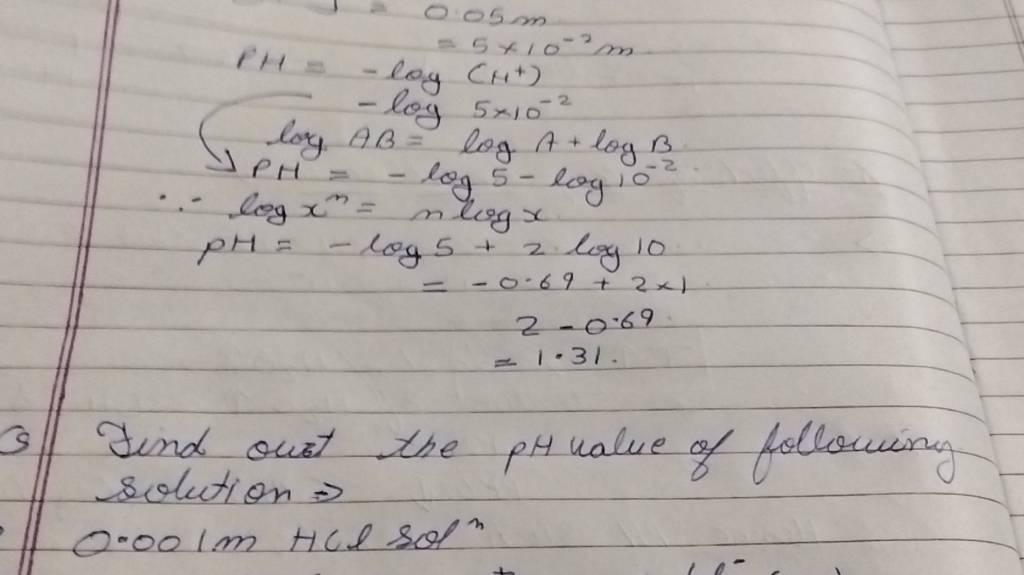 = 0.05m
= 5×10⁻²m
PH = -log (H⁺)
-log 5×10⁻²
log AB = log A + log B
PH = - log 5 - log 10⁻²
∵ log xⁿ = n log x
pH = -log 5 + 2 log 10
= -0.69 + 2×1
2 - 0.69
= 1.31.
Q Find out the pH value of following
solution ⇒
0.001m HCl solⁿ